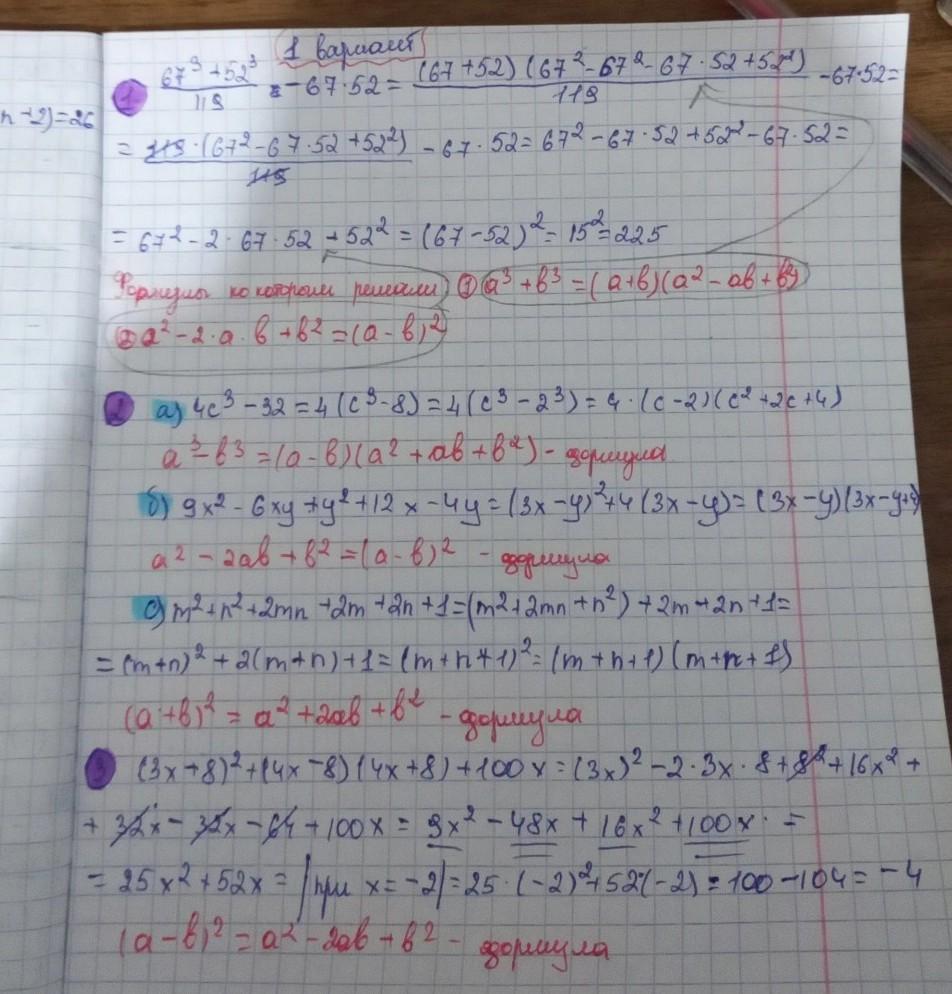 1 вариант
n+2)=26
1 67³+52³/119 - 67·52 = (67+52)(67²-67²-67·52+52²)/119 -67·52=
= 119·(67²-67·52+52²)/119 - 67·52=67²-67·52+52²-67·52=
= 67²-2·67·52+52²=(67-52)²=15²=225
Формулы по которым решали ① a³+b³=(a+b)(a²-ab+b²)
② a²-2·a·b+b²=(a-b)²
2 а) 4c³-32=4(c³-8)=4(c³-2³)=4·(c-2)(c²+2c+4)
a³-b³=(a-b)(a²+ab+b²) - формула
б) 9x²-6xy+y²+12x-4y=(3x-y)²+4(3x-y)=(3x-y)(3x-y+4)
a²-2ab+b²=(a-b)² - формула
с) m²+n²+2mn+2m+2n+1=(m²+2mn+n²)+2m+2n+1=
=(m+n)²+2(m+n)+1=(m+n+1)²=(m+n+1)(m+n+1)
(a+b)²=a²+2ab+b² - формула
3 (3x-8)²+(4x-8)(4x+8)+100x=(3x)²-2·3x·8+8²+16x²+
+32x-32x-64+100x=9x²-48x+16x²+100x=
=25x²+52x=|при x=-2|=25·(-2)²+52·(-2)=100-104=-4
(a-b)²=a²-2ab+b² - формула